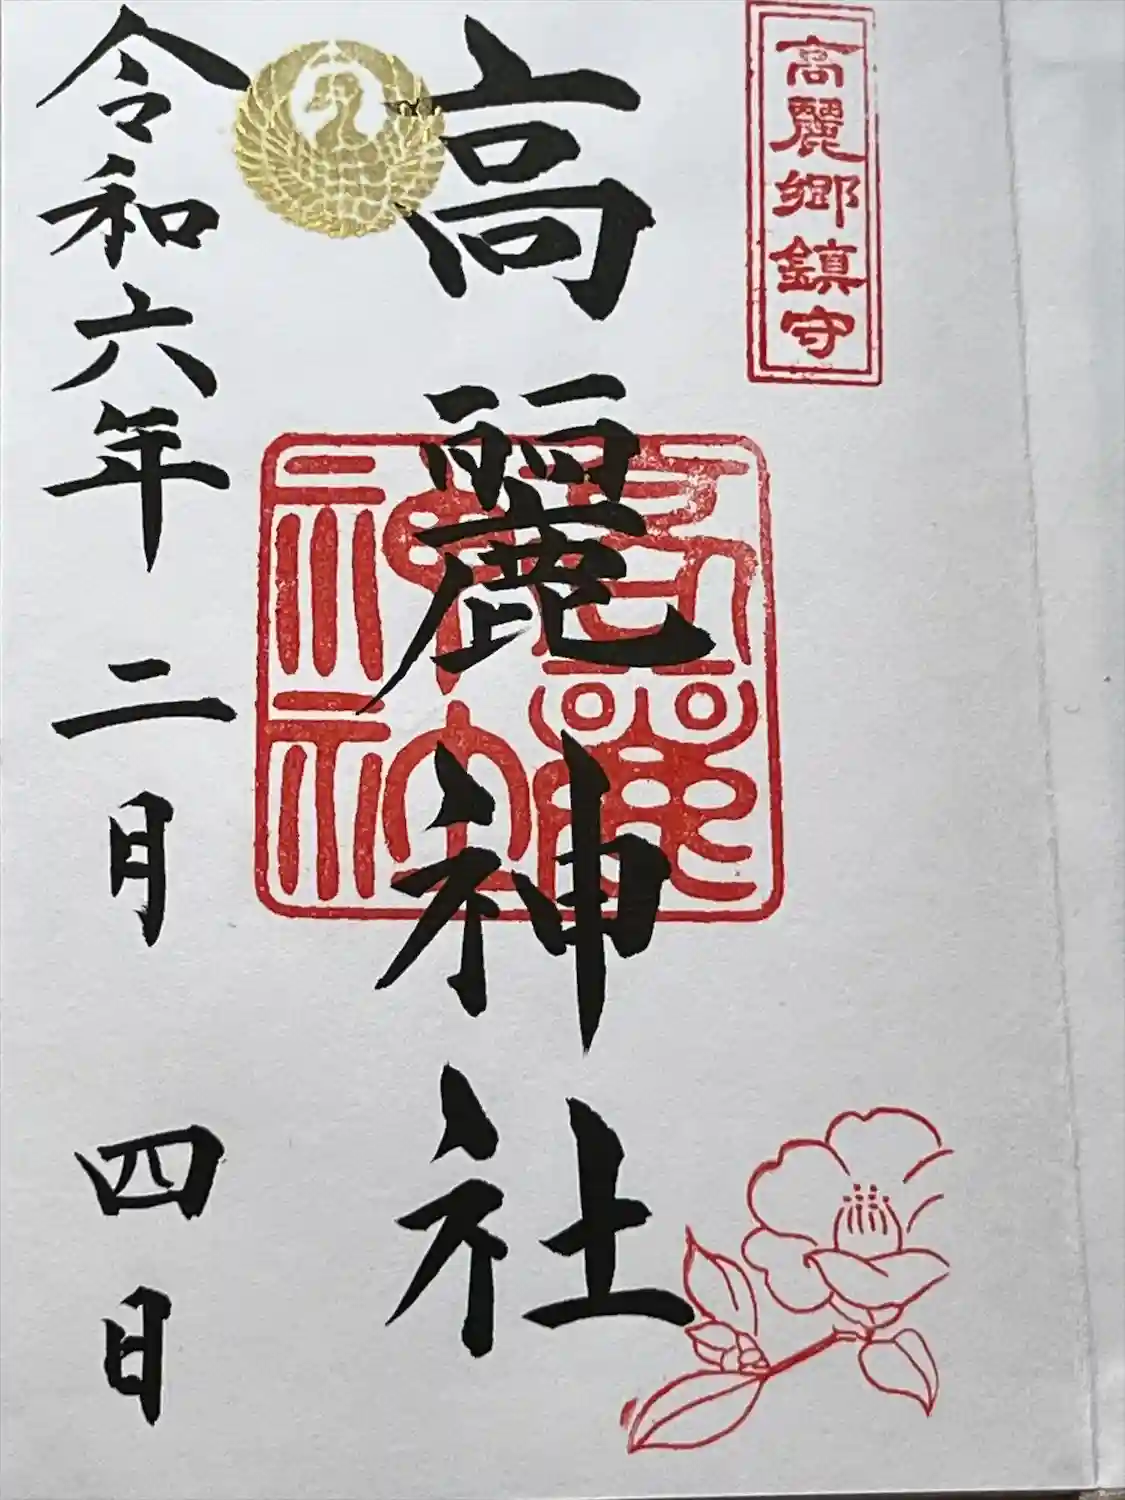 高麗郷鎮守
高麗神社
高麗神社
令和六年二月四日